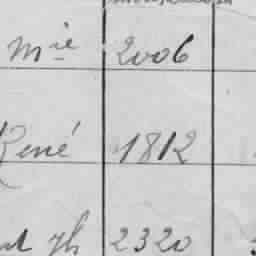 Mie 2006
René 1812
2320